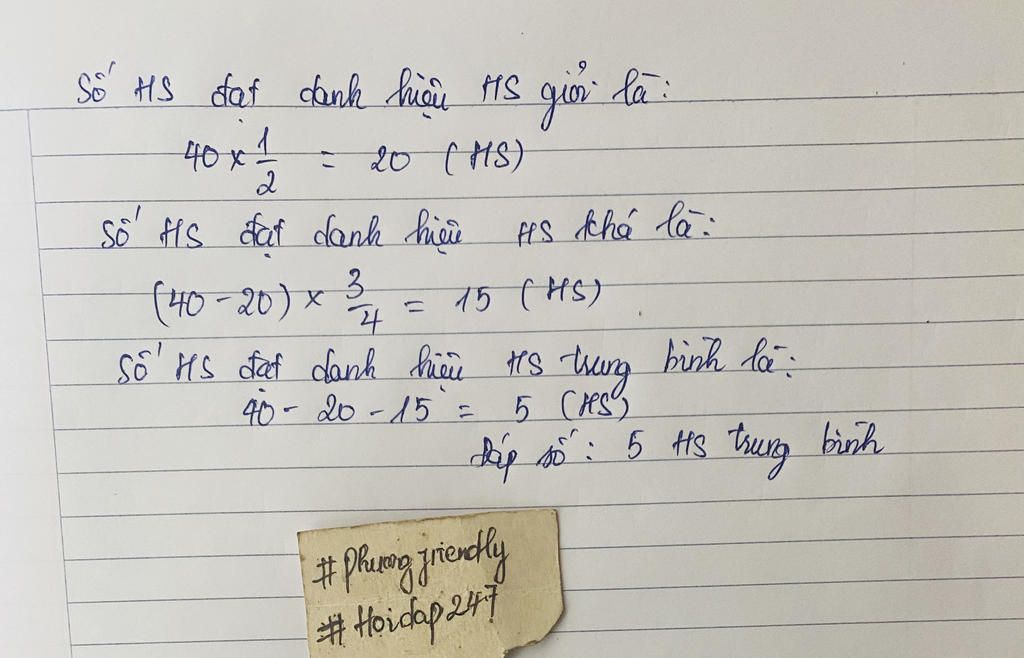 Số HS đạt danh hiệu HS giỏi là:
40 x 1/2 = 20 (HS)
Số HS đạt danh hiệu HS khá là:
(40 - 20) x 3/4 = 15 (HS)
Số HS đạt danh hiệu HS trung bình là:
40 - 20 - 15 = 5 (HS)
Đáp số: 5 HS trung bình
#Phuongfriendly
#Hoidap247